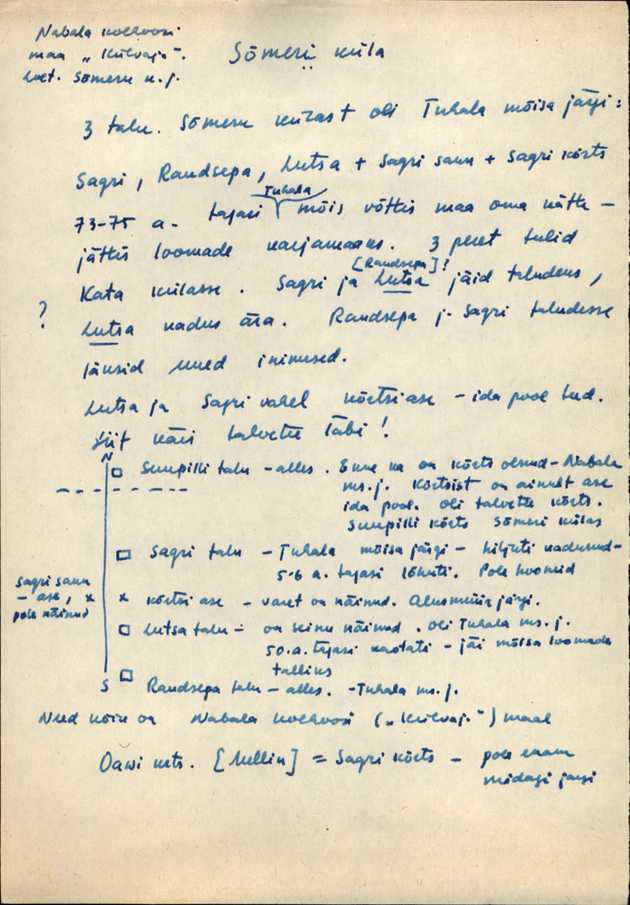 Nabala kolhoosi
maa "Külvaja".
Loet. Sõmeru k. j.
Sõmeri küla
3 talu. Sõmeru külast oli Tuhala mõisa järgi:
Sagri, Randsepa, Lutsa + Sagri saun + Sagri kõrts
Tuhala
73-75 a. tagasi mõis võttis maa oma kätte –
jättis loomade karjamaaks. 3 peret tulid
[Randsepa]!
Kata külasse. Sagri ja Lutsa jäid taludeks,
? Lutsa kadus ära. Randsepa j. Sagri taludesse
läksid uued inimesed.
Lutsa ja Sagri vahel kõrtsiase – ida pool teed.
Siit käis talvetee läbi!
N
Suupilli talu – alles. Enne ka on kõrts olnud – Nabala
ms. j. Kõrtsist on ainult ase
ida pool. Oli talvetee kõrts.
Suupilli kõrts Sõmeri külas
Sagri talu – Tuhala mõisa järgi – hiljuti kadunud –
5-6 a. tagasi lõhuti. Pole hooneid
Sagri saun
– ase, x
pole näinud
x kõrtsi ase – varet on näinud. Alusmüür järgi.
Lutsa talu – on seinu näinud. Oli Tuhala ms. j.
50. a. tagasi kaotati – jäi mõisa loomade
talliks
S
Randsepa talu – alles. – Tuhala ms. j.
Need kõik on Nabala kolhoosi ("Külvaja") maal
[Mellin] = Sagri kõrts – pole enam
midagi järgi